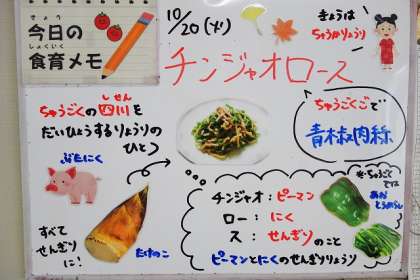 きょう
今日の
しょくいく
食育メモ
10/20(火)
きょうは
ちゅうかりょうり
チンジャオロース
ちゅうごくの四川を
しせん
だいひょうするりょうりの
ひとつ
ちゅうごくごで
青椒肉絲
ぶたにく
すべて
せんぎり
に!
たけのこ
チンジャオ:ピーマン
ロー:にく
ス:せんぎりのこと
ピーマンとにくのせんぎりりょうり
では
あお
とうがらし